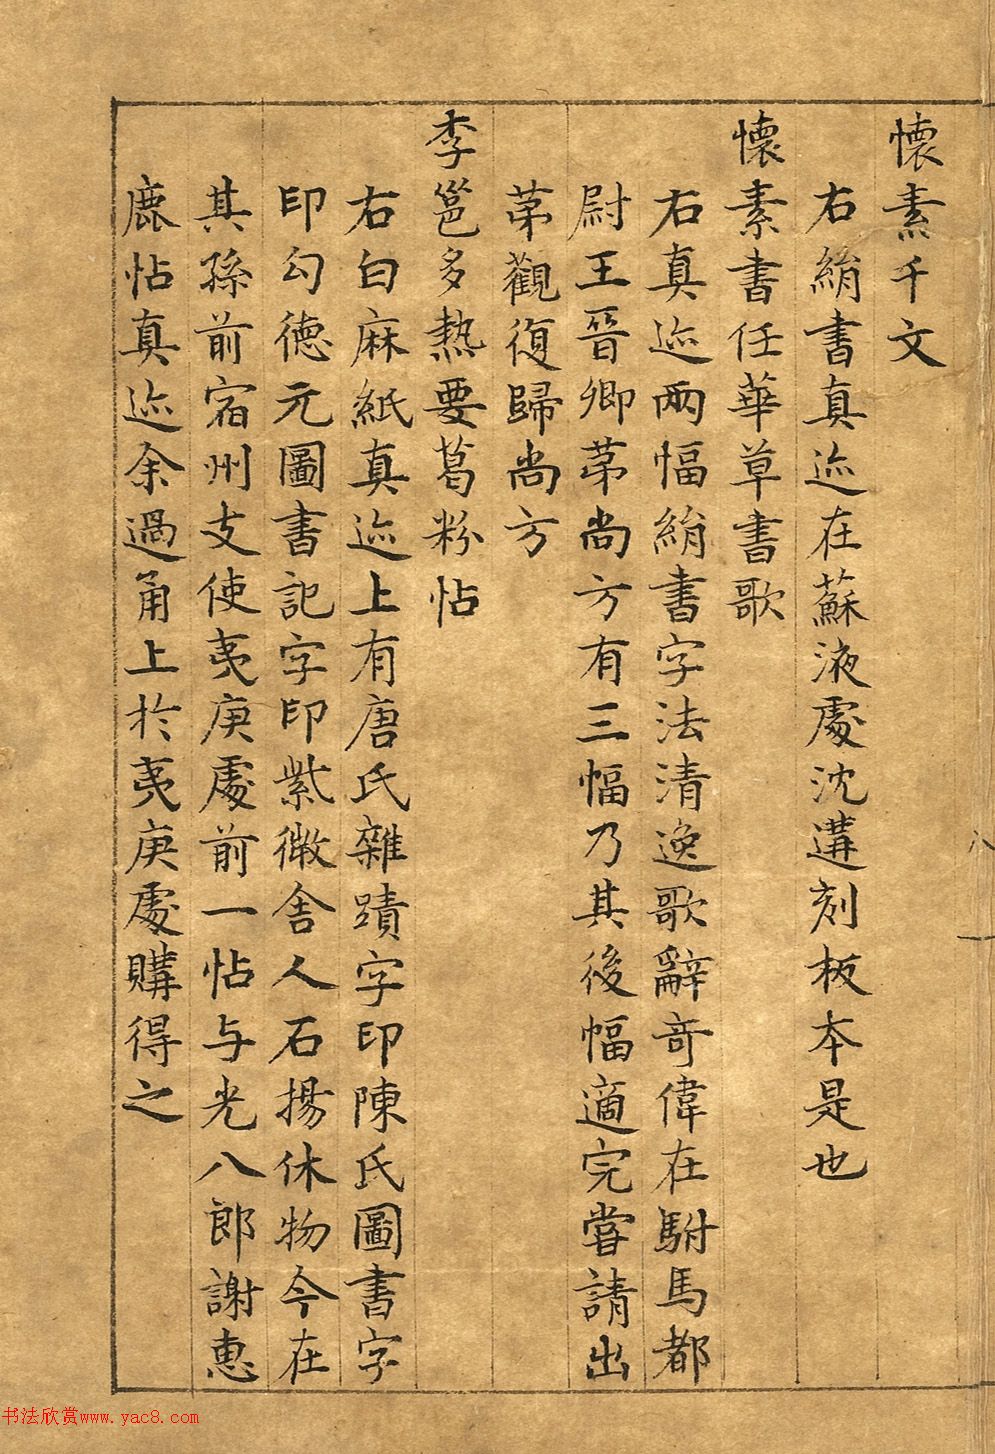 懷素千文
右絹書真迹在蘇液處沈遘刻板本是也
懷素書任華草書歌
右真迹兩幅絹書字法清逸歌辭奇偉在駙馬都
尉王晉卿苐尚方有三幅乃其後幅適完嘗請出
苐觀復歸尚方
李邕多熱要葛粉帖
右白麻紙真迹上有唐氏雜蹟字印陳氏圖書字
印勾德元圖書記字印紫微舍人石揚休物今在
其孫前宿州支使夷庚處前一帖与光八郎謝惠
鹿帖真迹余過甬上於夷庚處購得之
八
书法欣赏www.yac8.com